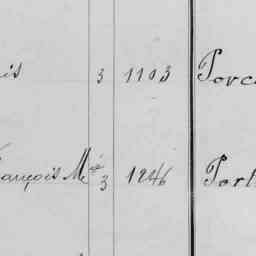 is 3 1103 Porc
ançois M^e 3 1246 Port